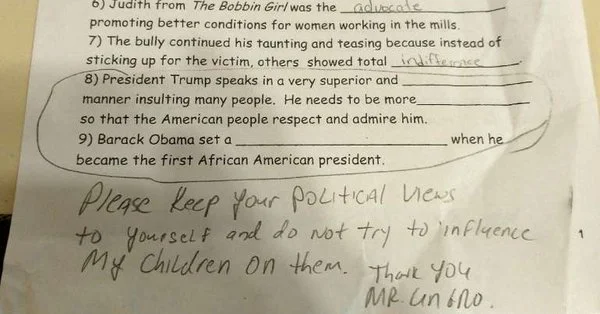 6) Judith from The Bobbin Girl was the advocate
promoting better conditions for women working in the mills.
7) The bully continued his taunting and teasing because instead of
sticking up for the victim, others showed total indifference.
8) President Trump speaks in a very superior and ____________
manner insulting many people. He needs to be more____________
so that the American people respect and admire him.
9) Barack Obama set a ____________ when he
became the first African American president.
Please keep your POLITICAL views
to yourself and do not try to influence
My children on them. Thank you
MR.
1